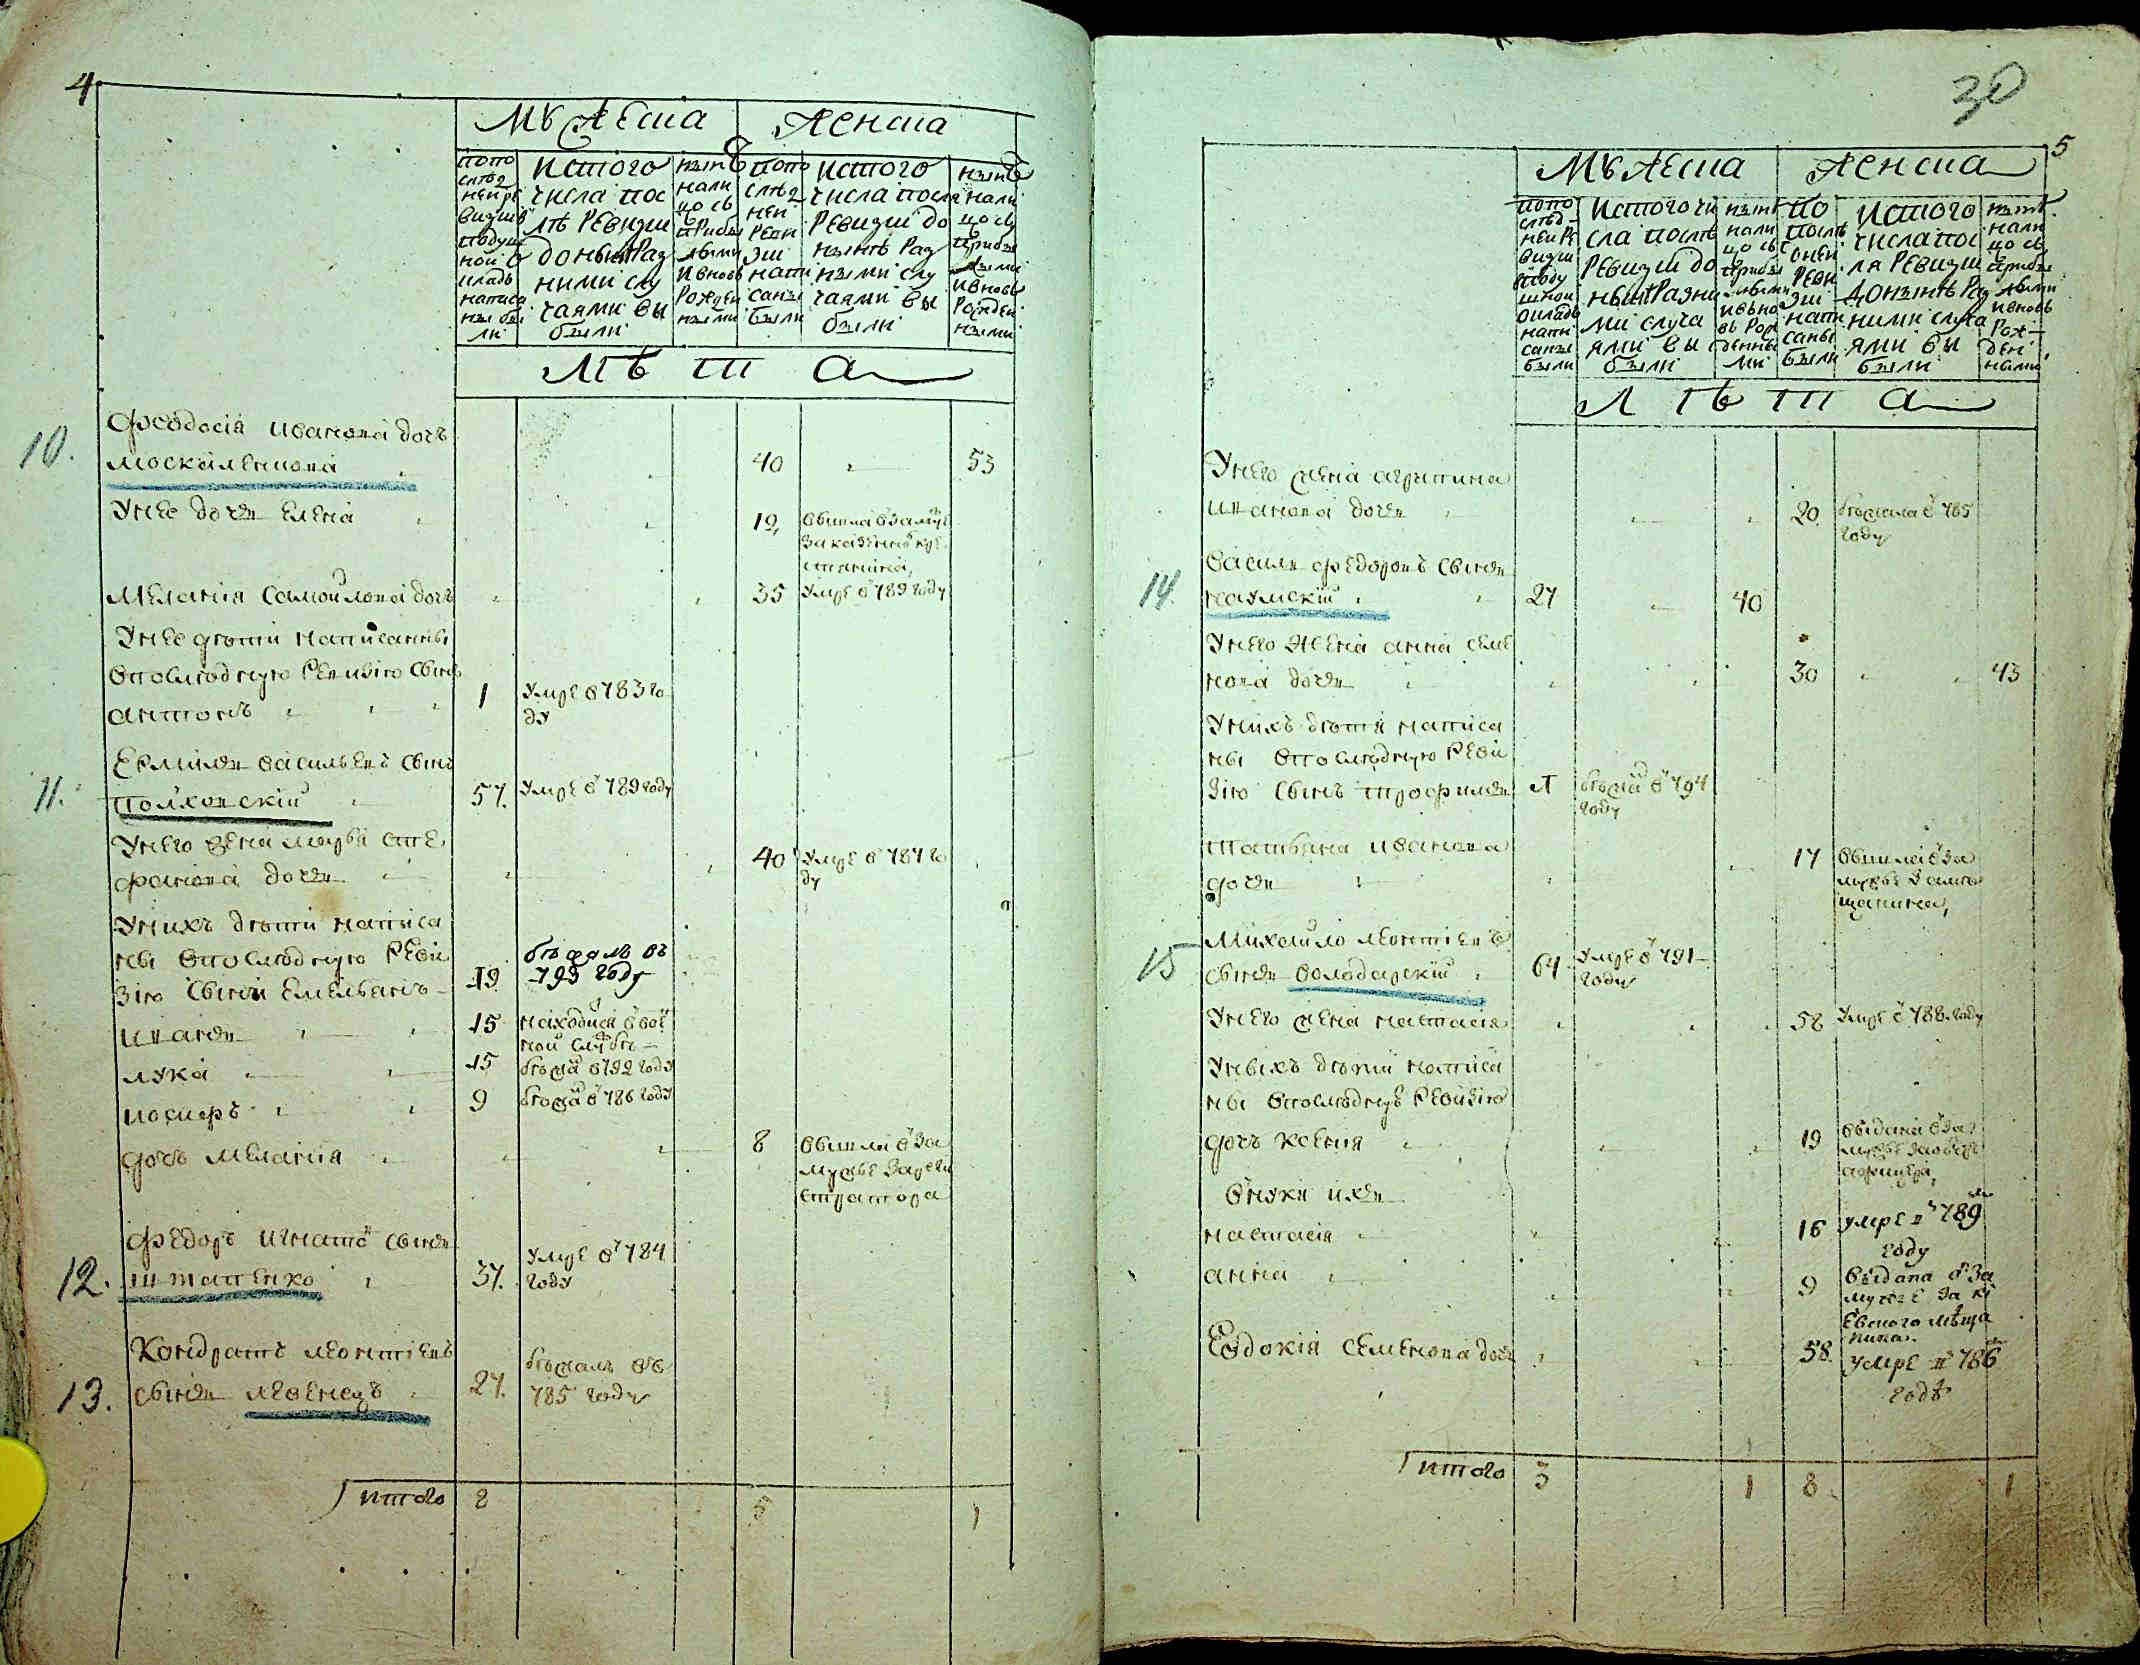 4
Мѣжеска
Женска
попо
слѣд
ней ре
визии
подуш
ной о
кладъ
написа
ны бы
ли
истого
числа пос
лѣ ревизии
до нынѣ раз
ними слу
чаями вы
были
нынѣ
нали
цо съ
прибы
лыми
и вновь
рожден
ными
попо
слѣд
ней
реви
зии
напи
саны
были
истого
числа посля
ревизии до
нынѣ раз
ными слу
чаями вы
были
нынѣ
нали
цо съ
прибы
лыми
и вновь
рожден
ными
Лѣта
10.
Феодосія Иванова дочь
Москаленкова 40 53
Унее дочь Елена 19 вышла взамуж
за казенна кре
стьянина,
Меланія Самойлова дочь 35 умре в 789 году
Унее дѣти написанны
впослѣднюю ревизію сынъ
антонъ 1 умре в 783 го
ду
11.
Ермила Васильевъ сынъ
Полховскій 57. умре в 789 году
Унего жена марфа сте
фанова дочь 40 умре в 787 го
ду
Унихъ дѣти написа
ны впослѣднюю реви
зію сыни Емельянъ 19 бѣжалъ въ
793 году
иванъ 15 находися в вой
ной службѣ
лука 15 бѣжа в 792 году
иосифъ 9 бѣжа в 786 году
дочь меланія 8 вышла в за
мужье за реги
стратора
12.
Федоръ Игнатов сынъ
Штапенко 37. умре в 784
году
13.
Кондратъ Леонтіевъ
сынъ Левенецъ 27. бѣжалъ въ
785 году
итого 8 5 1
30
5
Мѣжеска
Женска
попо
слѣд
ней ре
визии
поду
шной
окладъ
напи
саны
были
истого чи
сла послѣ
ревизии до
нынѣ разны
ми случа
ями вы
были
нынѣ
нали
цо съ
прибы
лыми
и вно
вь рож
денны
ми
по
послѣ
дней
реви
зии
напи
саны
были
истого
числа пос
ля ревизии
до нынѣ раз
ними случа
ями вы
были
нынѣ
нали
цо съ
прибы
лыми
и вновь
рож
ден
ными
Лѣта
Унего жена агрипина
иванова дочь 20. бѣжала в 785
году
14.
Василь Федоровъ сынъ
Наумскій 27 40
Унего жена анна семе
нова дочь 30 43
Унихъ дѣти написа
ны впослѣднюю реви
зію сынъ трофимъ бѣжа в 794
году
Татьяна иванова
дочь 17 вышла в за
мужье за мѣ
щанина,
15
Михайло Леонтіевъ
сынъ Володарскій 64 умре в 791
году
Унего жена настасія 58 умре в 788 году
Унихъ дѣти написа
ны впослѣднюю ревизію
дочь Ксенія 19 выдана в за
мужье за обер
афицера,
внуки ихъ
настасія 16 умре в 789
году
анна 9 выдана в за
мужье за кі
евского мѣща
нина.
Евдокія Семенова дочь 58. умре в 786
годѣ
итого 3 1 8 1